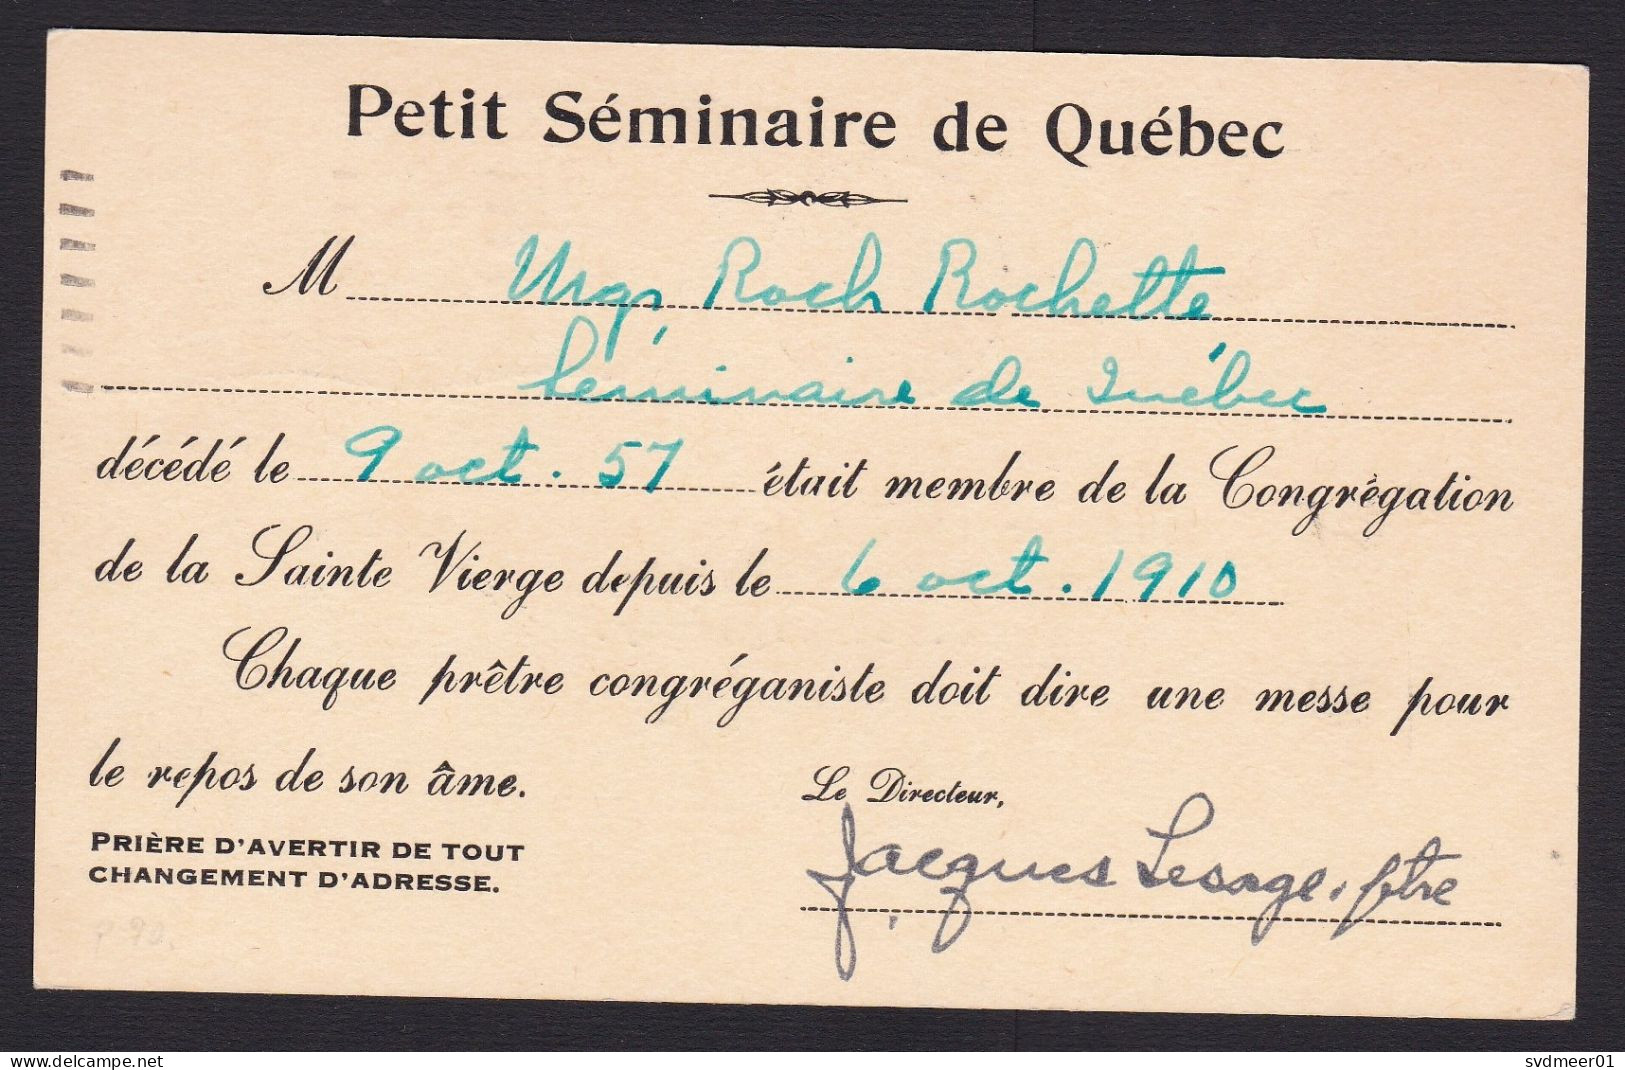 Petit Séminaire de Québec
M Mgr Roch Rochette
Séminaire de Québec
décédé le 9 oct. 57 était membre de la Congrégation
de la Sainte Vierge depuis le 6 oct. 1910
Chaque prêtre congréganiste doit dire une messe pour
le repos de son âme.
Le Directeur,
PRIÈRE D'AVERTIR DE TOUT
CHANGEMENT D'ADRESSE.
Jacques Lesage, ptre
the world's largest marketplace for collectors | delcampe.net
svdmeer01